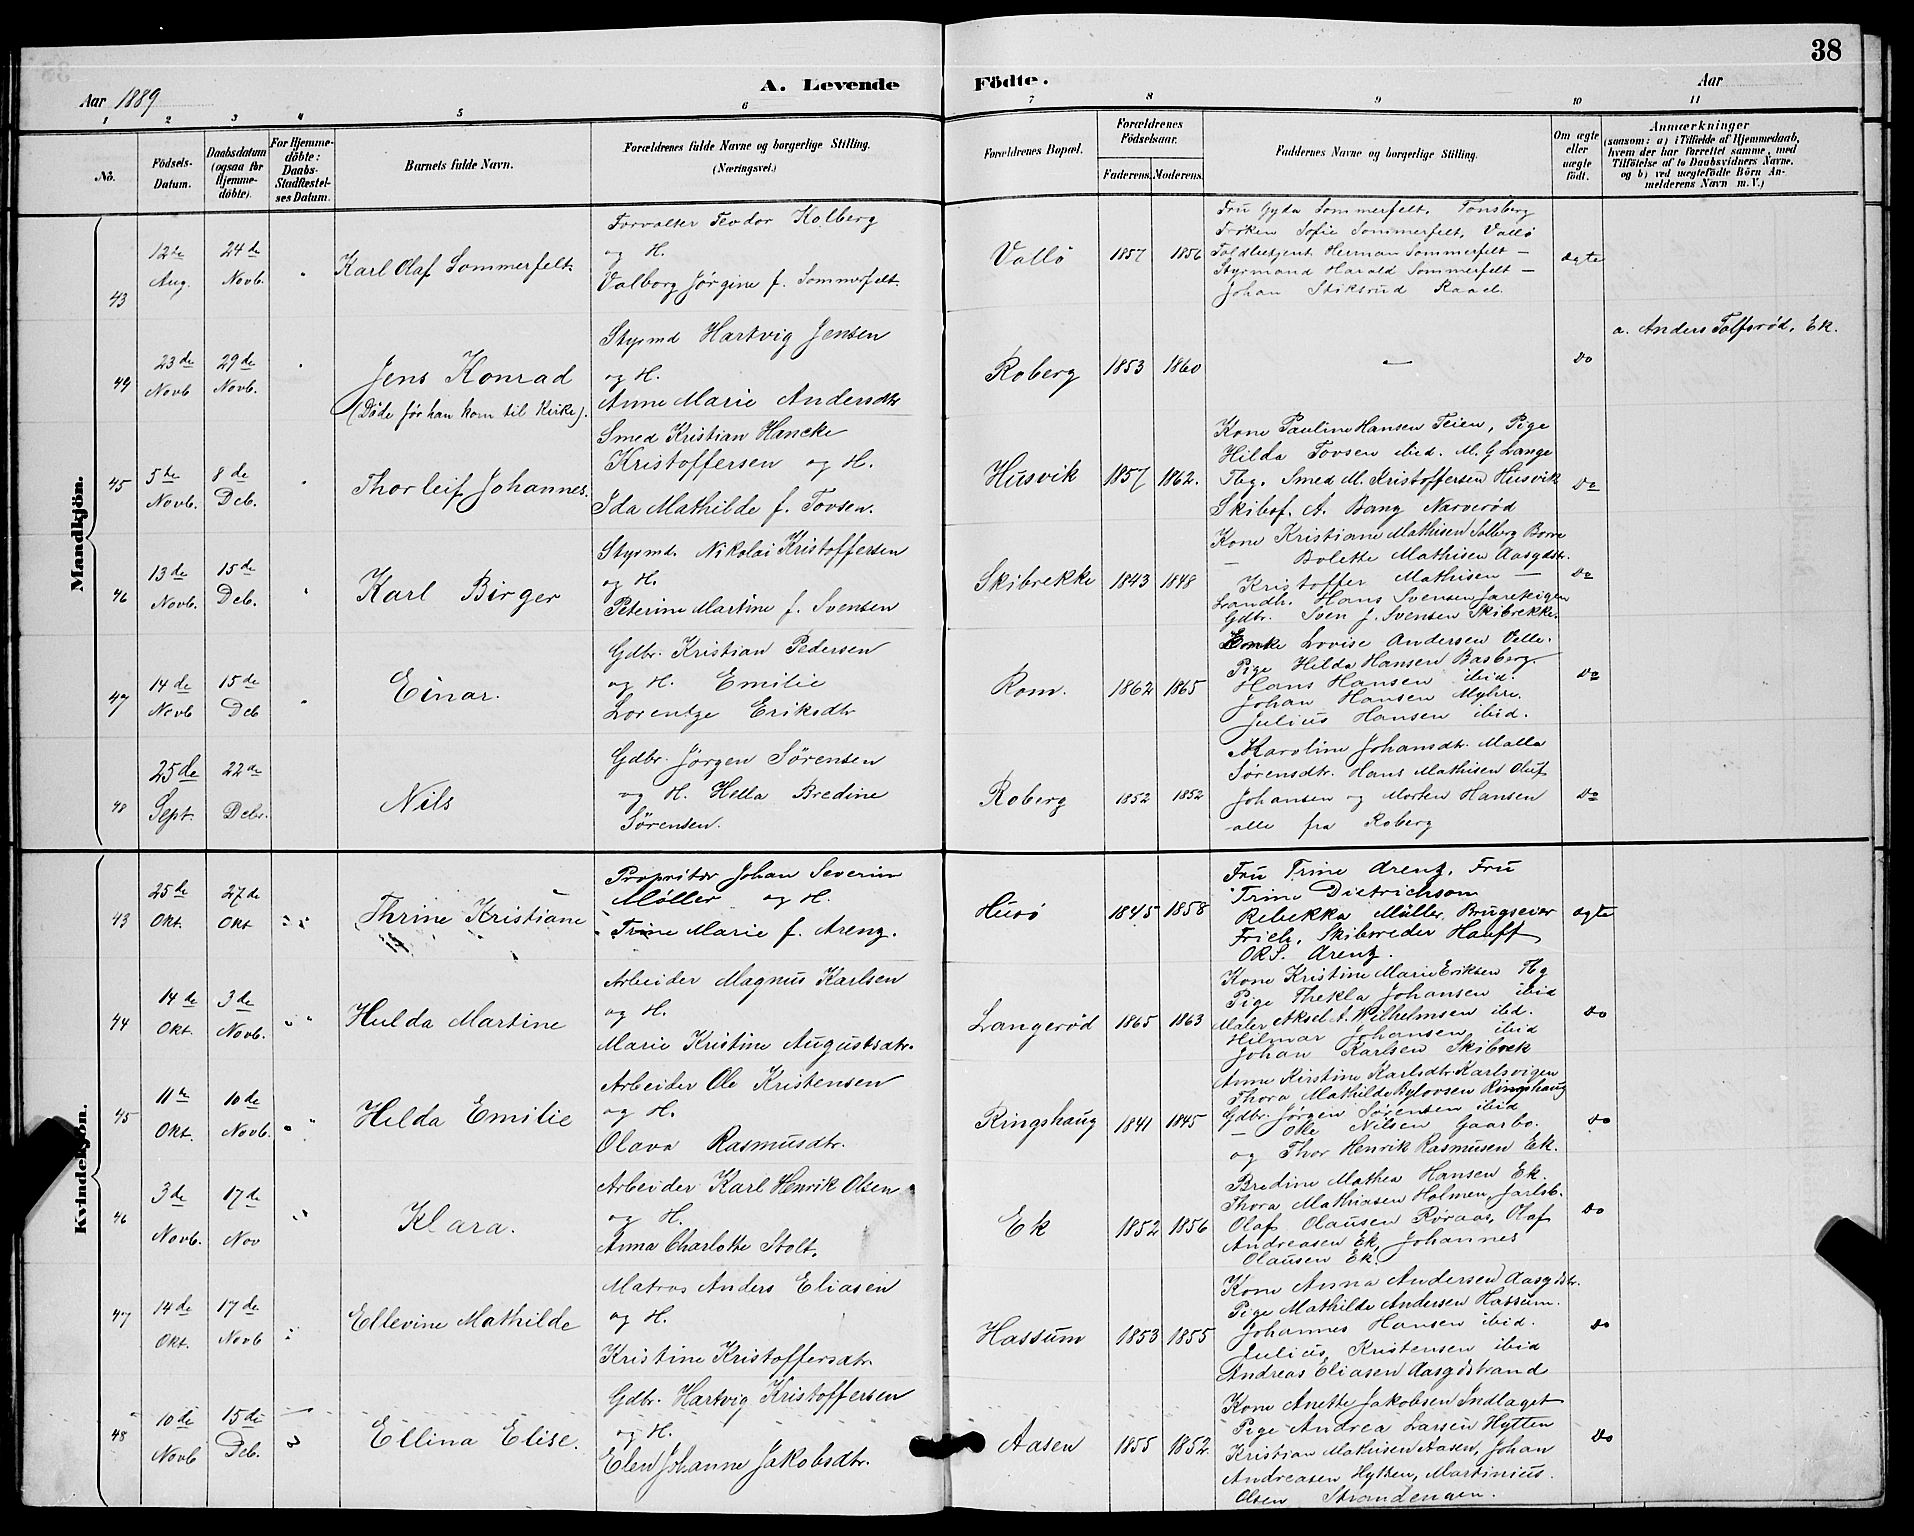 38
Aar 1889
A. Levende Födte.
Aar
1 2 3 4 5 6 7 8 9 10 11
Nö.
Födsels-Datum.
Daabsdatum (ogsaa for Hjemmedöbte).
For Hjemmedöbte: Daabs-Stadfæstelses Datum.
Barnets fulde Navn.
Forældrenes fulde Navne og borgerlige Stilling. (Næringsvei.)
Forældrenes Bopæl.
Forældrenes Födselsaar.
Faderens. Moderens.
Faddernes Navne og borgerlige Stilling.
Om ægte eller uægte födt.
Anmærkninger
(saasom: a) i Tilfælde af Hjemmedaab, hvem der har forrettet samme, med Tilföielse af to Daabsvidners Navne, og b) ved uægtefödte Börn Anmelderens Navn m. V.)
Mandkjön.
43
12te Aug.
24de Novb.
Karl Olaf Sommerfelt
Forvalter Teodor Kolberg
og H.
Valborg Jørgine f. Sommerfelt
Vallö
1857 1856
Fru Gyda Sommerfelt, Tønsberg
Frøken Sofie Sommerfelt, Vallö
Toldbetjent Herman Sommerfelt —
Styrmand Harald Sommerfelt —
Johan Stiksrud Raael.
ægte
44
23de Novb
29de Novb.
Jens Konrad
(Døde før han kom til Kirke).
Styrmd Hartvig Jensen
og H.
Anne Marie Andersdtr
Roberg
1853 1860
—
do
a. Anders Tolfsrød, Ek.
45
5te Novb.
8de Deb.
Thorleif Johannes.
Smed Kristian Hancke
Kristoffersen og H.
Ida Mathilde f. Tovsen.
Husvik
1857 1862.
Kone Pauline Hansen Teien, Pige
Hilda Tovsen ibid. M. G Lange
Tbg. Smed M. Kristoffersen Husvik
Skibsf. A. Bang Narverød
Do
46
13de Novb.
15de Deb.
Karl Birger
Styrmd. Nikolai Kristoffersen
og H.
Peterine Martine f. Svensen
Skibrekke
1843 1848
Kone Kristiane Mathisen Solberg Borre
— Bolette Mathisen Aasgdst.
Kristoffer Mathisen —
Landh. Hans Svensen Jareteigen
Gdbr. Sven J. Svensen Skibrekke.
Do
47
14de Novb
15de Deb
Einar.
Gdbr. Kristian Pedersen
og H. Emilie
Lorentze Eriksdtr
Rom.
1862 1865
Enke Lovise Andersen Velle.
Pige Hilda Hansen Basberg.
Hans Hansen ibid.
Johan Hansen Myhre.
Julius Hansen ibid.
Do
48
25de Sept.
22de Debr.
Nils
Gdbr. Jørgen Sørensen
og H. Hella Bredine
Sørensen.
Roberg
1852 1852
Karoline Johansdtr. Malla
Sørensdtr. Hans Mathisen Oluf
Johansen og Morten Hansen
alle fra Roberg
Do
Kvindekjön.
43
25de Okt.
27de Okt
Thrine Kristiane
Propritær Johan Severin
Møller og H.
Trine Marie f. Arenz.
Husö
1845 1858
Fru Trine Arenz, Fru
Trine Dietrichson
Rebekka Müller, Brugseier
Frich, Skibsreder Hauff
ORS. Arenz.
ægte
44
14de Okt.
3de Novb.
Hulda Martine
Arbeider Magnus Karlsen
og H.
Marie Kristine Augustsdtr.
Langerød
1865 1863
Kone Kristine Marie Eriksen Tbg
Pige Thekla Johansen ibid
Maler Aksel A. Wilhelmsen ibid.
Hilmar Johansen ibid
Johan Karlsen Skibrek
Do
45
11te Okt.
10de Novb.
Hilda Emilie
Arbeider Ole Kristensen
og H.
Olava Rasmusdtr.
Ringshaug
1841 1845
Anne Kirstine Karlsdtr. Karlsvigen
Thora Mathilde Rylovsen Ringshaug
Gdbr. Jørgen Sørensen ibid
— Ole Nilsen Gaarbo.
og Thor Henrik Rasmusen Ek.
Do
46
3de Novb.
17de Nov
Klara.
Arbeider Karl Henrik Olsen
og H.
Anna Charlotte Stolt.
Ek
1852 1856
Bredine Mathea Hansen Ek.
Thora Mathiasen Holmen, Jarlsb.
Olaf Olausen Røraas, Olaf
Andreasen Ek, Johannes
Olausen Ek.
Do
47
14de Okt.
17de Novb
Ellevine Mathilde
Matros Anders Eliasen
og H.
Kristine Kristoffersdtr
Hassum
1853 1855
Kone Anna Andersen Aasgdstr.
Pige Mathilde Andersen Hassum.
Johannes Hansen ibid.
Julius Kristensen ibid
Andreas Eliasen Aasgdstrand
Do
48
10de Novb
15de Deb.
Ellina Elise.
Gdbr. Hartvig Kristoffersen
og H.
Elen Johanne Jakobsdtr.
Aasen
1855 1852.
Kone Anette Jakobsen Indlaget
Pige Andrea Larsen Hytten
Kristian Mathisen Aasen, Johan
Andreasen Hytten, Martinius
Olsen Strandengen.
Do